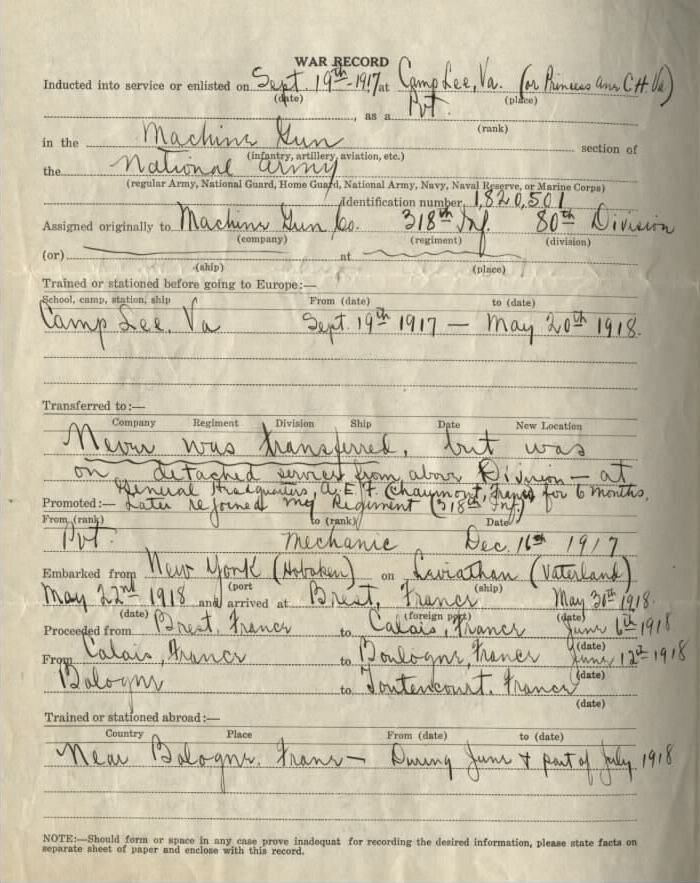 WAR RECORD
Inducted into service or enlisted on Sept. 19th 1917 at Camp Lee, Va. (or Princess Ann C.H. Va)
(date) (place)
, as a Pvt.
(rank)
in the Machine Gun section of
(infantry, artillery, aviation, etc.)
the National Army
(regular Army, National Guard, Home Guard, National Army, Navy, Naval Reserve, or Marine Corps)
Identification number 1,820,501
Assigned originally to Machine Gun Co. 318th Inf. 80th Division
(company) (regiment) (division)
(or) at
(ship) (place)
Trained or stationed before going to Europe:—
School, camp, station, ship From (date) to (date)
Camp Lee, Va Sept. 19th 1917 — May 20th 1918.
Transferred to:—
Company Regiment Division Ship Date New Location
Never was transferred, but was
on detached service from above Division — at
General Headquarters, A.E.F. (Chaumont, France) for 6 months,
Promoted:— Later rejoined my Regiment (318th Inf.)
From (rank) to (rank) Date
Pvt. Mechanic Dec. 16th 1917
Embarked from New York (Hoboken) on Leviathan (Vaterland)
(port (ship)
May 22nd 1918 and arrived at Brest, France May 30th 1918.
(date) (foreign port) (date)
Proceeded from Brest, France to Calais, France June 6th 1918
(date)
From Calais, France to Boulogne, France June 12th 1918
(date)
Bologne to Toutencourt, France
(date)
Trained or stationed abroad:—
Country Place From (date) to (date)
Near Bologne, France — During June & part of July 1918
NOTE:—Should form or space in any case prove inadequat for recording the desired information, please state facts on
separate sheet of paper and enclose with this record.